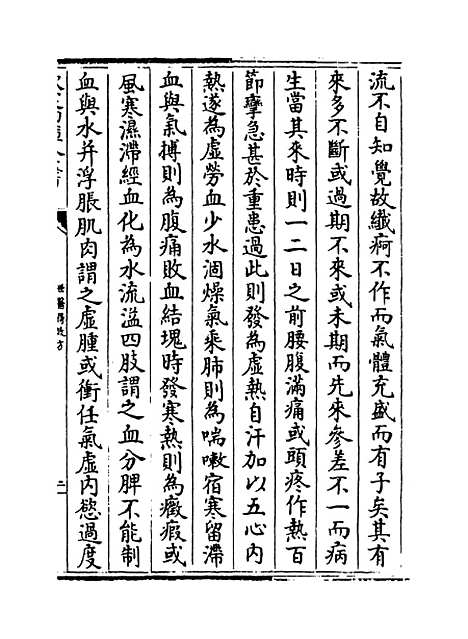 流不自知覺故纎疴不作而氣體充盛而有子矣其有
來多不斷或過期不來或未期而先來參差不一而病
生當其來時則一二日之前腰腹滿痛或頭疼作熱百
節孿急甚於重患過此則發為虛熱自汗加以五心内
熱遂為虛勞血少水涸燥氣乘肺則為喘嗽宿寒留滯
血與氣搏則為腹痛敗血結塊時發寒熱則為癥瘕或
風寒濕滯經血化為水流溢四肢謂之血分脾不能制
血與水并浮脹肌肉謂之虛腫或衝任氣虛内慾過度
世醫得效方